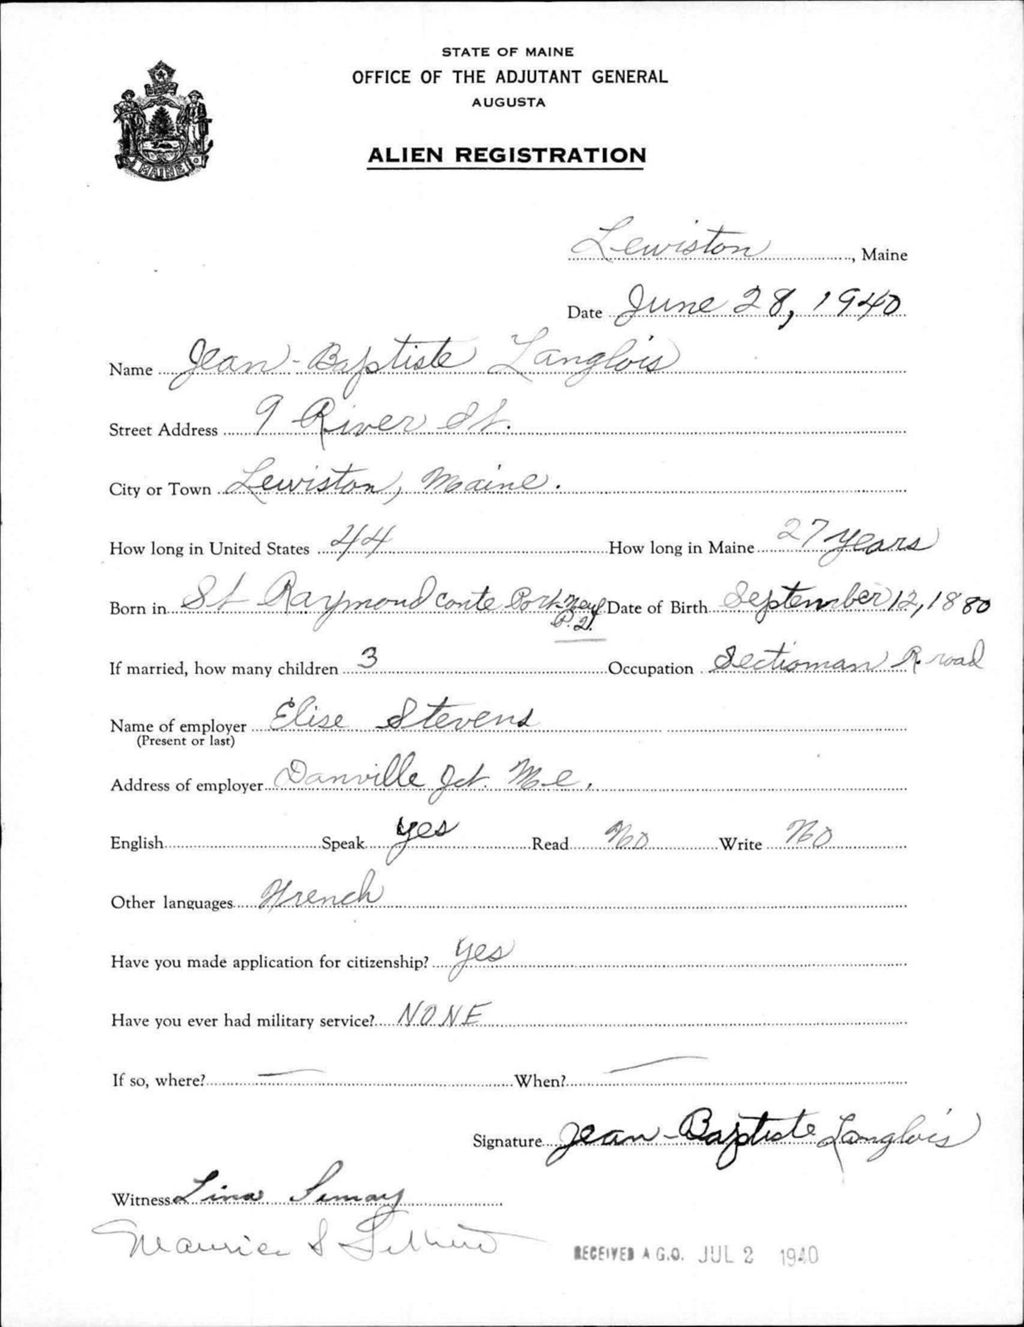 STATE OF MAINE
OFFICE OF THE ADJUTANT GENERAL
AUGUSTA
ALIEN REGISTRATION
MAINE
Lewiston, Maine
Date June 28, 1940
Name Jean-Baptiste Langlois
Street Address 9 River St.
City or Town Lewiston, Maine.
How long in United States 44 How long in Maine 27 years
Born in St Raymond conte Port-Neuf P.Q. Date of Birth September 12, 1880
If married, how many children 3 Occupation Sectionman R. road
Name of employer Elise Stevens
(Present or last)
Address of employer Danville Jct. Me.
English Speak yes Read No Write No
Other languages French
Have you made application for citizenship? Yes
Have you ever had military service? NONE
If so, where? — When? —
Signature Jean-Baptiste Langlois
Witness Lina
Maurice S
RECEIVED A.G.O. JUL 2 1940